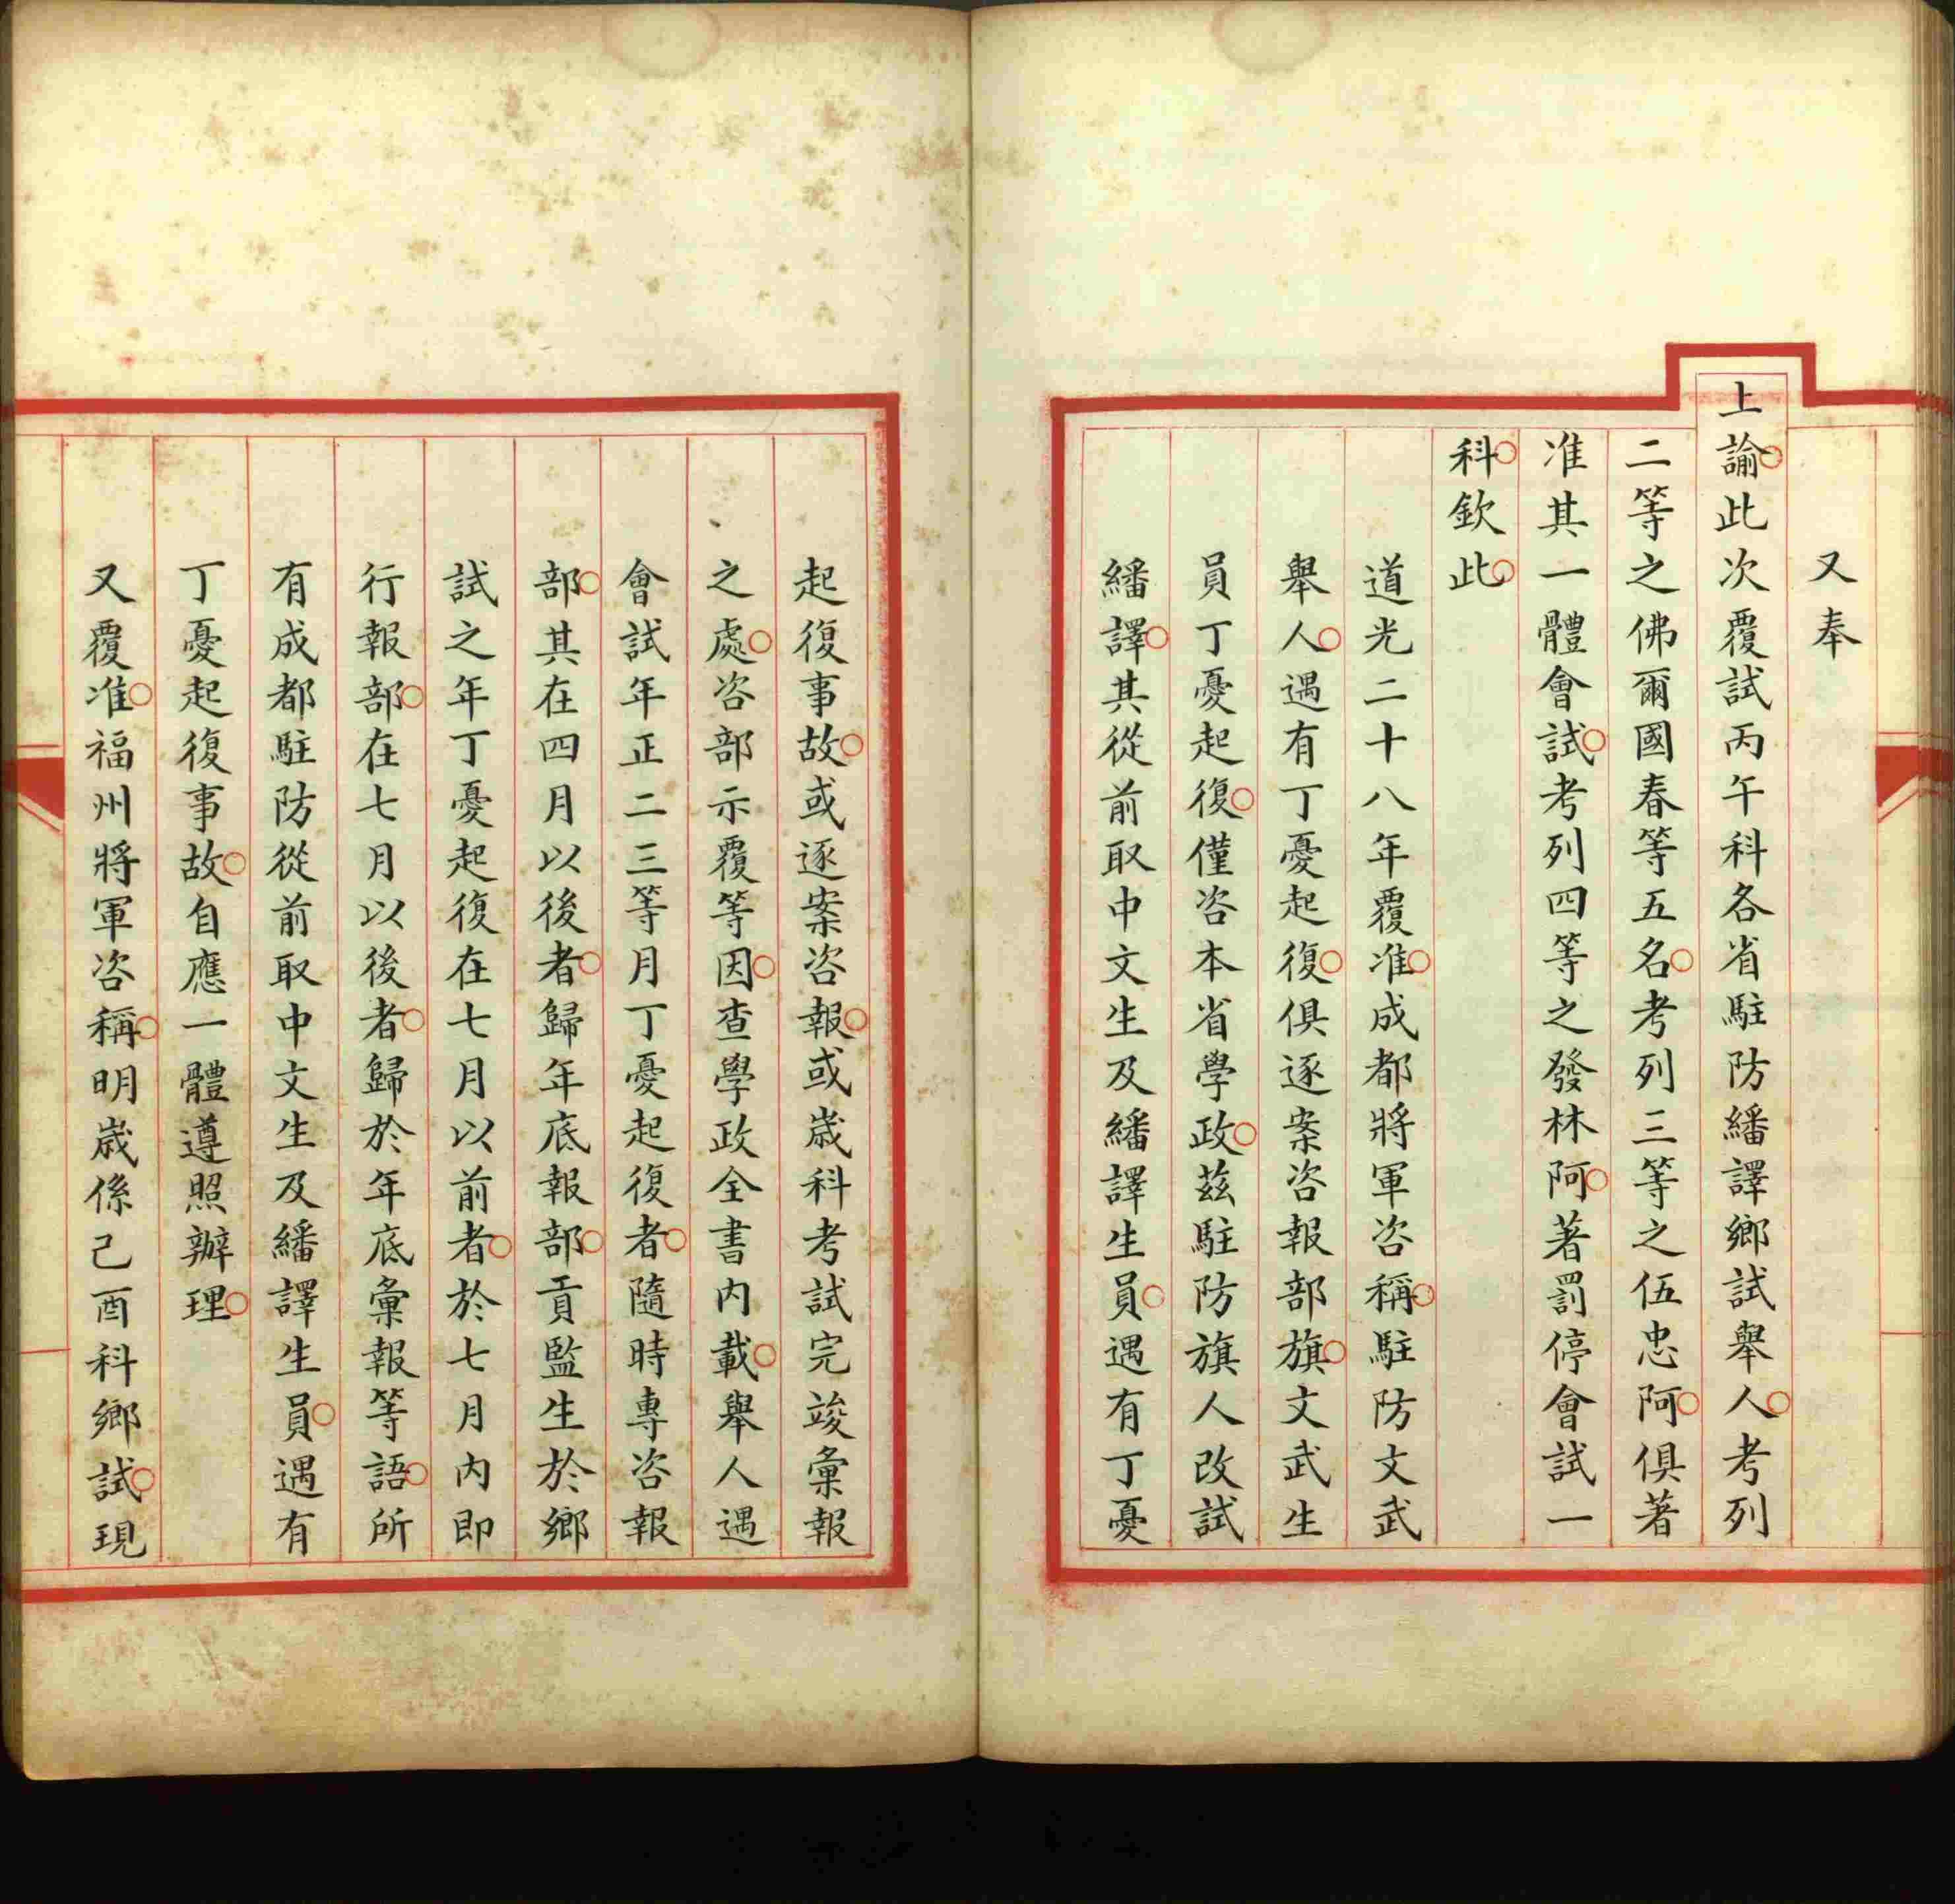 又奉
上諭此次覆試丙午科各省駐防繙譯鄉試舉人考列
二等之佛爾國春等五名考列三等之伍忠阿俱著
准其一體會試考列四等之發林阿著罰停會試一
科欽此
道光二十八年覆准成都將軍咨稱駐防文武
舉人遇有丁憂起復俱逐案咨報部旗文武生
員丁憂起復僅咨本省學政茲駐防旗人改試
繙譯其從前取中文生及繙譯生員遇有丁憂
起復事故或逐案咨報或歲科考試完竣彙報
之處咨部示覆等因查學政全書內載舉人遇
會試年正二三等月丁憂起復者隨時專咨報
部其在四月以後者歸年底報部貢監生於鄉
試之年丁憂起復在七月以前者於七月內即
行報部在七月以後者歸於年底彙報等語所
有成都駐防從前取中文生及繙譯生員遇有
丁憂起復事故自應一體遵照辦理
又覆准福州將軍咨稱明歲係己酉科鄉試現